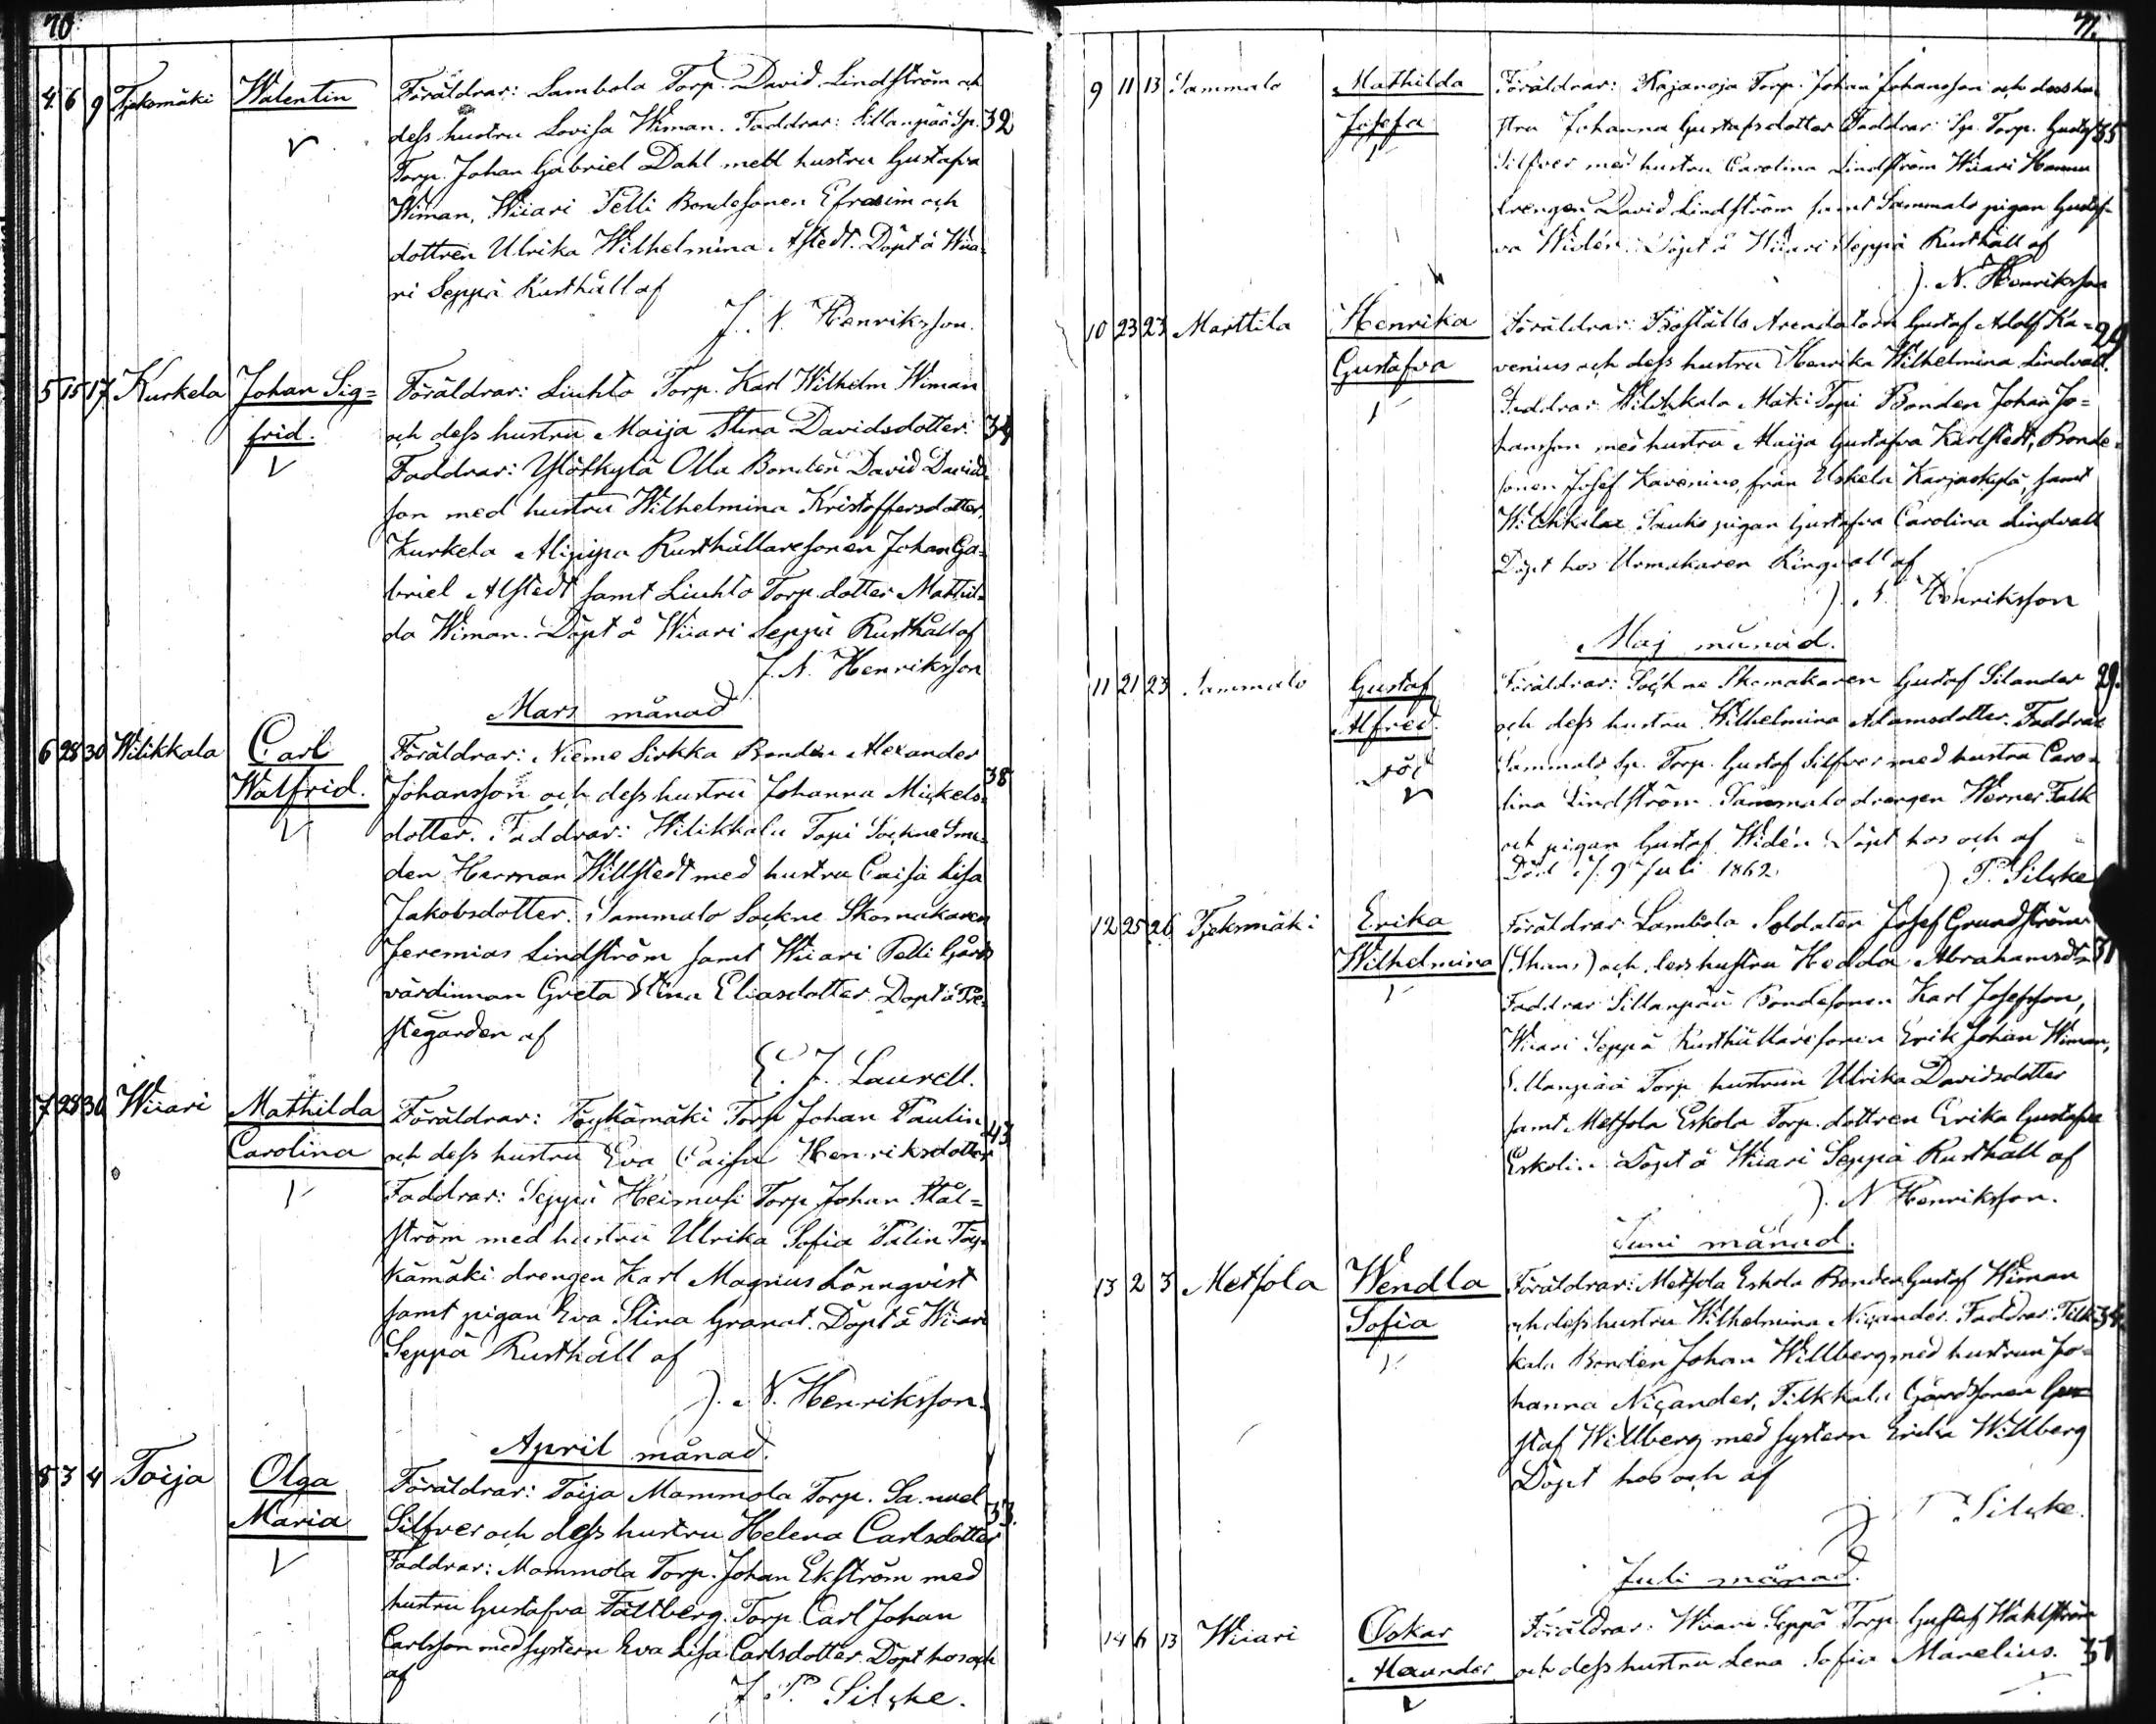 70.
4. 6 9 Tjeksmäki Walentin Föräldrar: Lambola Torp. David Lindström och
dess hustru Lovisa Wiman. Faddrar: Sillanpää Sp. 32
Torp. Johan Gabriel Dahl med hustru Gustafva
Wiman, Wiiari Pelli Bondesonen Efraim och
dottren Ulrika Wilhelmina Alstedt. Döpt å Wiia-
ri Seppä Rusthåll af
J. N. Henriksson.
5 15 17 Kurkela Johan Sig= Föräldrar: Liuhto Torp. Karl Wilhelm Wiman
frid. och dess hustru Maija Stina Davidsdotter. 34
Faddrar: Ylötkylä Olla Bonden David Davids-
son med hustru Wilhelmina Kristoffersdotter,
Kurkela Alipipa Rusthållaresonen Johan Ga-
briel Alstedt samt Liuhto Torp. dotter Mathil-
da Wiman. Döpt å Wiiari Seppä Rusthåll af
J. N. Henriksson
Mars månad
6 28 30 Wilikkala Carl Föräldrar: Nieme Sirkka Bonden Alexander
Walfrid. Johansson och dess hustru Johanna Mickels- 38
dotter. Faddrar: Wilikkala Topi Sockne Sme-
den Herman Willstedt med hustru Caisa Lisa
Jakobsdotter. Sammalo Sockne Skomakaren
Jeremias Lindström samt Wiiari Pelli Gårds
värdinnan Greta Stina Eliasdotter. Döpt å Pre-
stegården af
E. J. Laurell.
7 28 30 Wiiari Mathilda Föräldrar: Töykämäki Torp Johan Paulin
Carolina och dess hustru Eva Caisa Henriksdotter 43
Faddrar: Seppä Heimusi Torp. Johan Stål=
ström med hustru Ulrika Sofia Palin Töy-
kämäki drengen Karl Magnus Lönnqvist
samt pigan Eva Stina Granat. Döpt å Wiiari
Seppä Rusthåll af
J. N. Henriksson.
April månad.
8 3 4 Toija Olga Föräldrar: Toija Mommola Torp. Samuel
Maria Silfver och dess hustru Helena Carlsdotter 33.
Faddrar: Mommola Torp. Johan Ekström med
hustru Gustafva Fältberg. Torp. Carl Johan
Carlsson med systern Eva Lisa Carlsdotter. Döpt hos och
af
J. P. Silcke.
71.
9 11 13 Sammalo Mathilda Föräldrar: Kajanoja Torp. Johan Johansson och dess hu-
Josefa stru Johanna Gustafsdotter Faddrar: Sp. Torp. Gustaf 35
Silfver med hustru Carolina Lindström Wiiari Hannu
drengen David Lindström samt Sammalo pigan Gustaf-
va Widén. Döpt å Wiiari Seppä Rusthåll af
J. N. Henriksson
10 23 23 Marttila Henrika Föräldrar: Boställs Arendatorn Gustaf Adolf Ka= 29
Gustafva venius och dess hustru Henrika Wilhelmina Lindvall.
Faddrar: Wilikkala Mäki Topi Bonden Johan Jo=
hansson med hustru Maija Gustafva Karlstedt, Bonde-
sonen Josef Kavenius från Uskela Karjaskylä samt
Wilikkala pigan Gustafva Carolina Lindvall
Döpt hos Urmakaren Ringvall af
J. N. Henriksson
Maj månad.
11 21 23 Sammalo Gustaf Föräldrar: Sockne Skomakaren Gustaf Silander 29.
Alfred. och dess hustru Wilhelmina Adamsdotter. Faddrar
död Sammalo Sp. Torp. Gustaf Silfver med hustru Caro-
lina Lindström. Sammalo drengen Werner Falk
och pigan Gustaf. Widén. Döpt hos och af
Död d. 9 Juli 1862. J. P. Silcke
12 25 26 Tjeksmäki Erika Föräldrar Lambola Soldaten Josef Grundström
Wilhelmina och dess hustru Hedda Abrahamsdtr 31
Faddrar Sillanpää Bondesonen Karl Josefsson,
Wiiari Seppä Rusthållaresonen Erik Johan Wiman,
Sillanpää Torp. hustrun Ulrika Davidsdotter
samt Metsola Eskola Torp. dottren Erika Gustafva
Eskolin. Döpt å Wiiari Seppä Rusthåll af
J. N Henriksson.
Juni månad.
13 2 3 Metsola Wendla Föräldrar: Metsola Eskola Bonden Gustaf Wiman
Sofia och dess hustru Wilhelmina Nicander. Faddrar: Tilk- 34.
kala Bonden Johan Willberg med hustrun Jo-
hanna Nicander, Tilkkala Gårdssonen Gu-
staf Willberg med systern Erika Willberg
Döpt hos och af
J. P. Silcke.
Juli månad.
14 6 13 Wiiari Oskar Föräldrar: Wiiari Seppä Torp. Gustaf Wahlström
Alexander och dess hustru Lena Sofia Marelius. 31